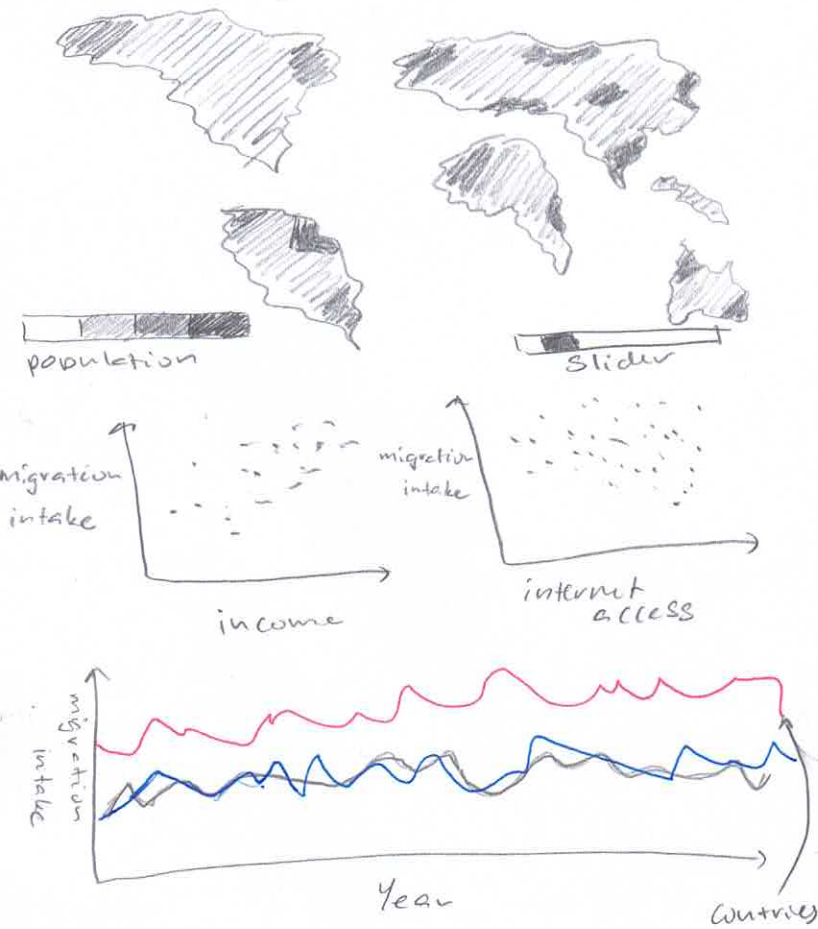 population
Slider
migration
intake
income
migration
intake
internet
access
migration
intake
Year
Countries